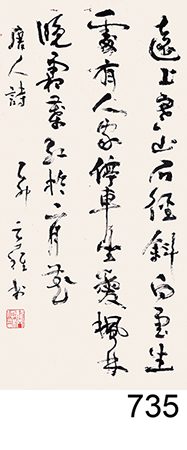 遠上寒山石徑斜白雲生
處有人家停車坐愛楓林
晚霜葉紅於二月花
唐人詩 乙卯 書
735